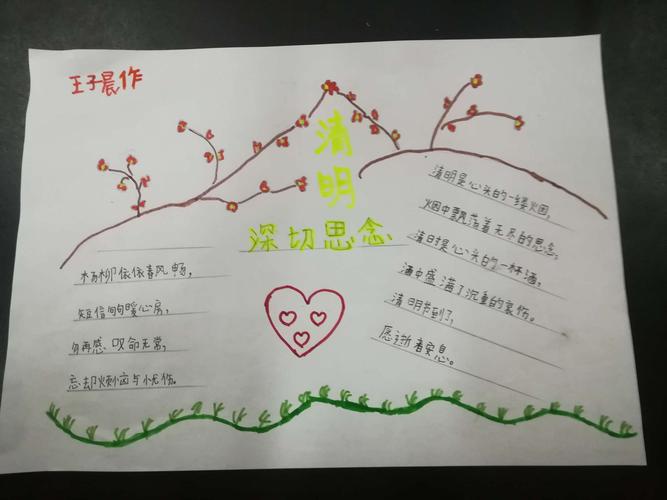 王子晨作
清明
深切思念
杨柳依依春风畅,
短信问暖心房,
勿再感叹命无常,
忘却烦恼与忧伤。
清明是心头的一缕烟,
烟中飘荡着无尽的思念;
清明是心头的一杯酒,
酒中盛满了沉重的哀伤。
清明节到了,
愿逝者安息。